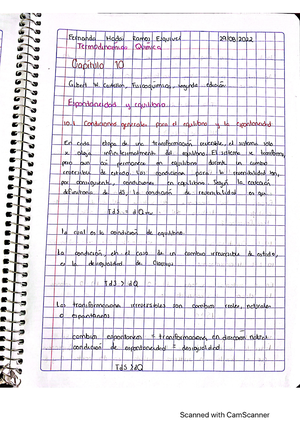 Fernanda Haday Ramos Esquivel 29/08/2022
Termodinámica Química
Capítulo 10
Gilbert W. Castellan, Fisicoquímica, segunda edición
Espontaneidad y equilibrio
10.1 Condiciones generales para el equilibrio y la espontaneidad
En cada etapa de una transformación reversible, el sistema solo
se aleja infinitesimalmente del equilibrio. El sistema se transforma,
pero aun así permanece en equilibrio durante un cambio
reversible de estado. Las condiciones para la reversibilidad son,
por consiguiente, condiciones de equilibrio. Según la ecuación
definitoria de dS, la condición de reversibilidad es que
TdS = dQrev
la cual es la condición de equilibrio.
La condición, en el caso de un cambio irreversible de estado,
es la desigualdad de Clausius
TdS > dQ
Las transformaciones irreversibles son cambios reales, naturales
o espontáneos
cambios espontáneos = transformaciones en dirección natural
condición de espontaneidad = desigualdad
TdS > dQ
Scanned with CamScanner